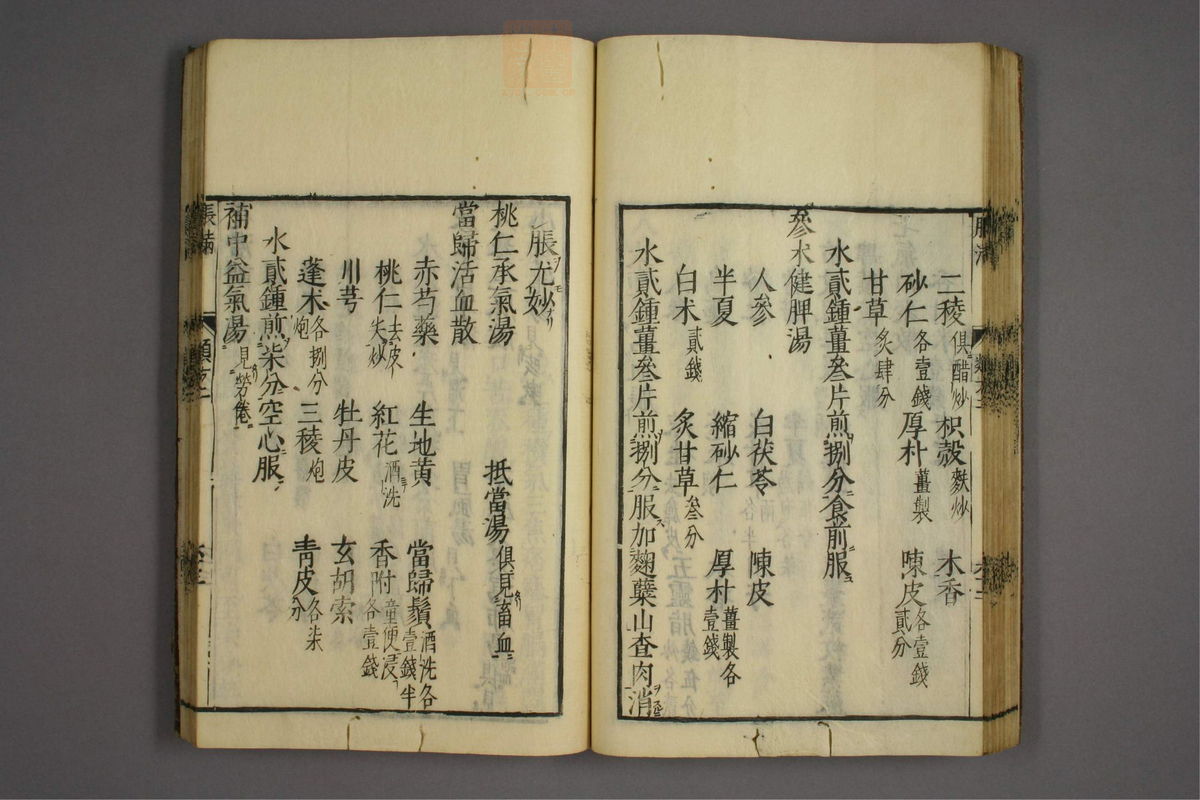 三稜俱醋炒 枳殼麩炒 木香
砂仁各壹錢 厚朴薑製 陳皮各壹錢貳分
甘草炙肆分
水貳鍾薑叄片煎捌分食前服
參朮健脾湯
人參 白茯苓 陳皮
半夏 縮砂仁 厚朴薑製各壹錢
白朮貳錢 炙甘草叄分
水貳鍾薑叄片煎捌分服加麴櫱山查肉消
脹尤妙
桃仁承氣湯 抵當湯俱見畜血
當歸活血散
赤芍藥 生地黃 當歸鬚酒洗各壹錢半
桃仁去皮尖炒 紅花酒洗 香附童便浸各壹錢
川芎 牡丹皮 玄胡索
蓬朮炮各捌分 三稜炮 青皮各柒分
水貳鍾煎柒分空心服
補中益氣湯見勞倦
脹滿 類方